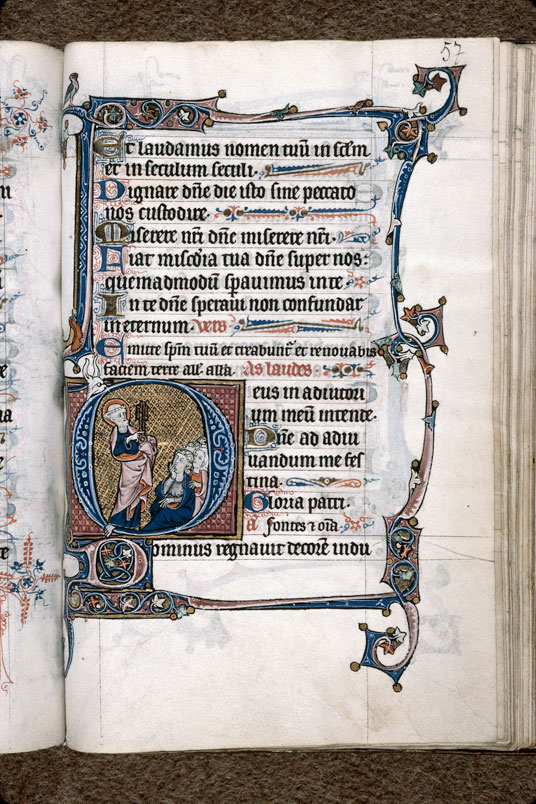 57
Et laudamus nomen tuū in sclm
et in seculum seculi.
Dignare dn̄e die isto sine peccato
nos custodire.
Miserere nr̄i dn̄e miserere nr̄i.
Fiat mis̄cdia tua dn̄e super nos:
quemadmodū spauimus in te
In te dn̄e speraui non confundar
in eternum. vers
Emitte spm̄ tuū et creabunt̄ et renouabis
faciem terre all̄e all̄a. As laudes
Deus in adiutori
um meū intente.
Dn̄e ad adiu
uandum me fes
tina.
Gloria patri.
a fontes ⁊ om̄a.
Dominus regnauit decorē indu